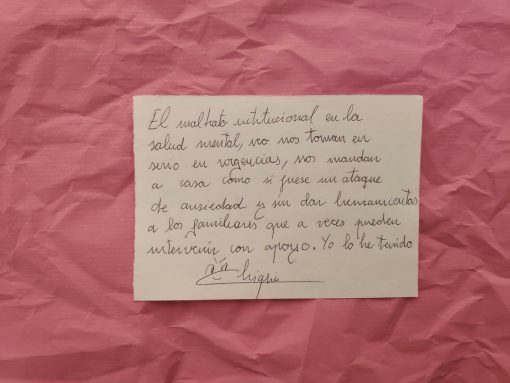 El maltrato institucional en la
salud mental, no nos toman en
serio en urgencias, nos mandan
a casa como si fuese un ataque
de ansiedad y sin dar herramientas
a los familiares que a veces pueden
intervenir con apoyo. Yo lo he tenido